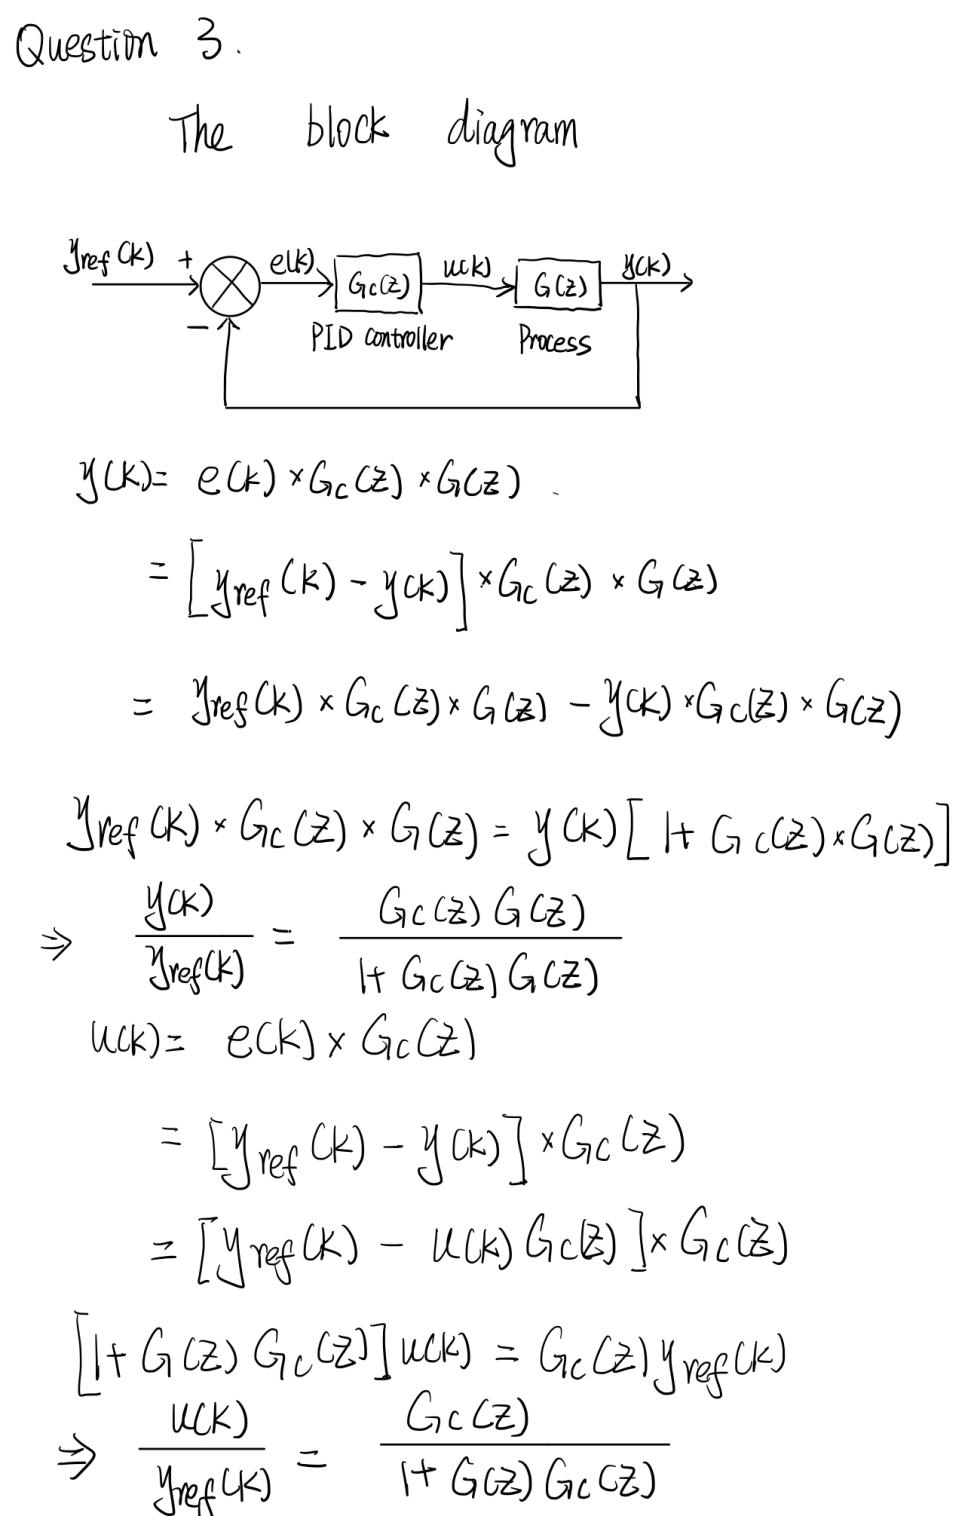 Question 3.
The block diagram
yref(k) + e(k) Gc(z) u(k) G(z) y(k)
−
PID controller Process
y(k)= e(k) × Gc(z) × G(z).
= [yref(k) - y(k)] × Gc(z) × G(z)
= yref(k) × Gc(z) × G(z) - y(k) × Gc(z) × G(z)
yref(k) × Gc(z) × G(z) = y(k)[1+ Gc(z) × G(z)]
⇒ y(k)/yref(k) = Gc(z) G(z)/1+ Gc(z) G(z)
u(k)= e(k) × Gc(z)
= [yref(k) - y(k)] × Gc(z)
= [yref(k) - u(k) Gc(z)] × Gc(z)
[1+ G(z) Gc(z)] u(k) = Gc(z) yref(k)
⇒ u(k)/yref(k) = Gc(z)/1+ G(z) Gc(z)